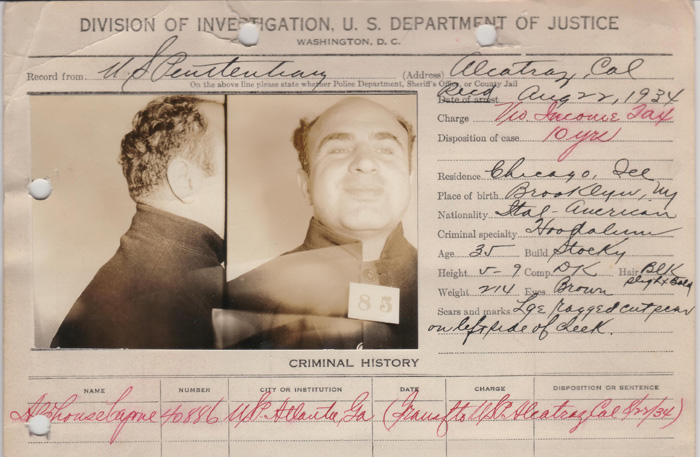 DIVISION OF INVESTIGATION, U. S. DEPARTMENT OF JUSTICE
WASHINGTON, D. C.
Record from U S Penitentiary (Address) Alcatraz, Cal
On the above line please state whether Police Department, Sheriff's Office, or County Jail
Recd
Date of arrest Aug 22, 1934
Charge Vio. Income Tax
Disposition of case 10 yrs
Residence Chicago, Ill
Place of birth Brooklyn, Ny
Nationality Ital-American
Criminal specialty Hoodlum
Age 35 Build Stocky
Height 5-9 Comp. DK Hair Blk
slight Bald
Weight 214 Eyes Brown
Scars and marks Lge ragged cut scar
on left side of cheek.
85
CRIMINAL HISTORY
NAME NUMBER CITY OR INSTITUTION DATE CHARGE DISPOSITION OR SENTENCE
Alphonse Capone 40886 USP. Atlanta, Ga (Transf to USP. Alcatraz Cal 8/22/34)